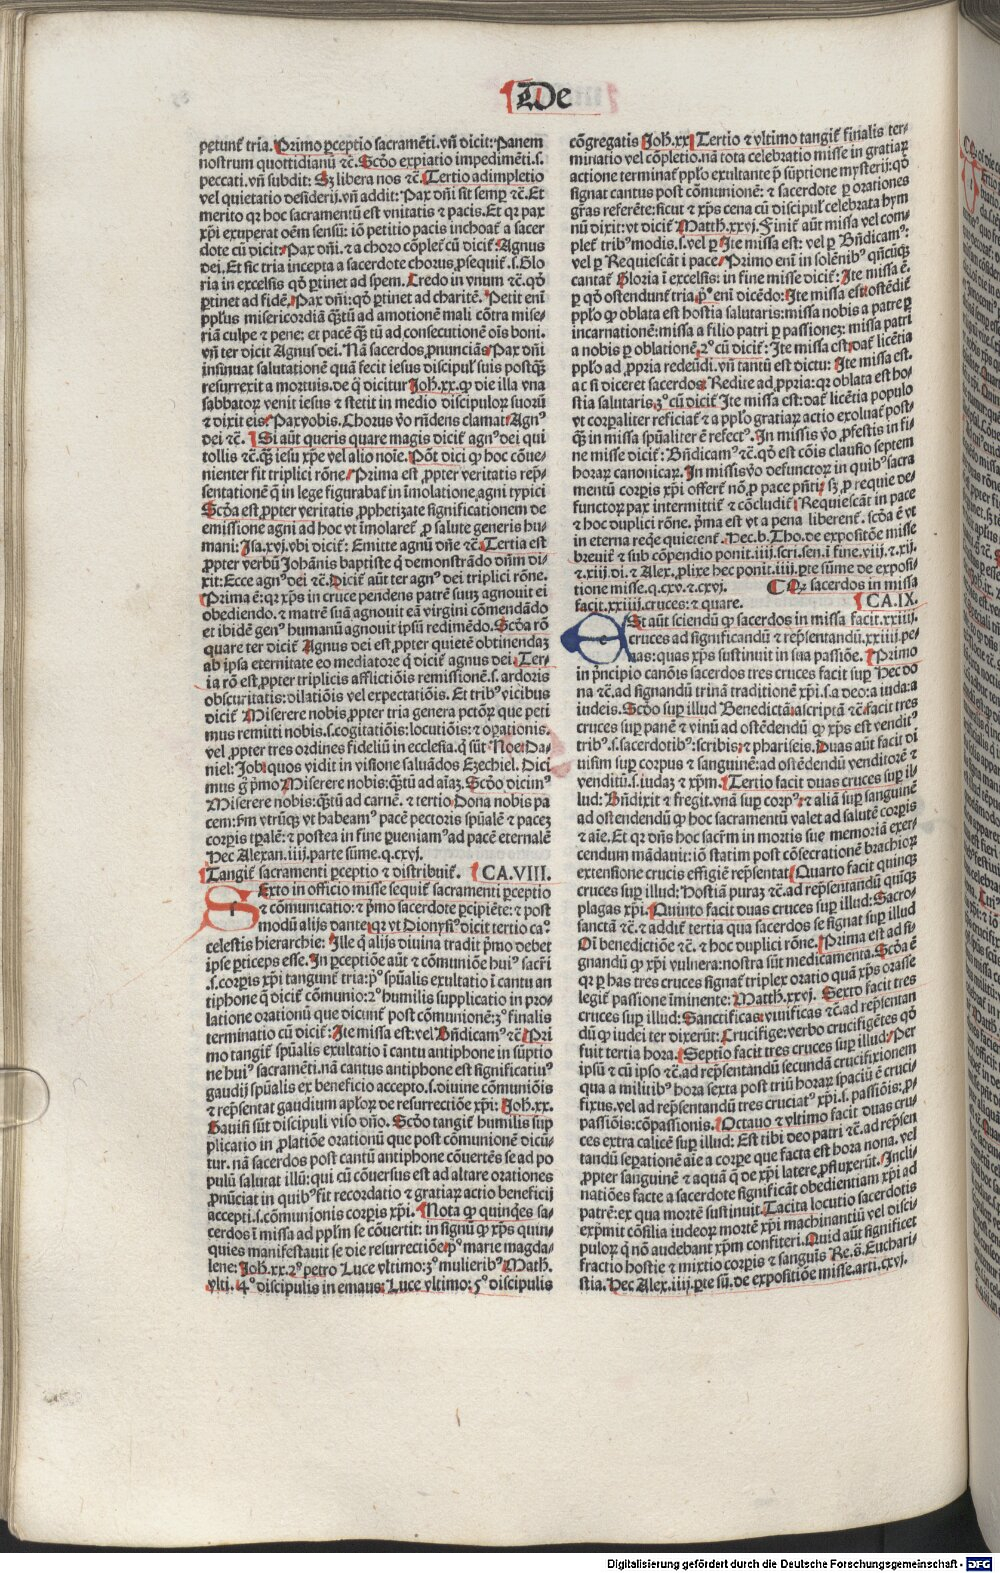 De
petunt tria. Primo ꝑceptio sacramēti. vñ dicit: Panem
nostrum quottidianū ⁊c̄. Scd̄o expiatio impedimēti. s.
peccati. vñ subdit: Sꝫ libera nos ⁊c̄. Tertio adimpletio
vel quietatio desiderij. vñ addit: Pax dn̄i sit semꝑ ⁊c̄. Et
merito qꝛ hoc sacramentū est vnitatis ⁊ pacis. Et qꝛ pax
xp̄i exuperat oēm sensū: iō petitio pacis inchoat̄ a sacer
dote cū dicit: Pax dn̄i. ⁊ a choro cōplet̄ cū dicit̄: Agnus
dei. Et sic tria incepta a sacerdote chorus ꝓsequit̄. s. Glo
ria in excelsis qd̓ ꝑtinet ad spem. Credo in vnum ⁊c̄. qd̓
ꝑtinet ad fidē. Pax dn̄i: qd̓ ꝑtinet ad charitē. Petit enī
pp̄lus misericordiā quātū ad amotionē mali cōtra mise/
riā culpe ⁊ pene: et pacē quātū ad consecutionē oīs boni.
vñ ter dicit Agnus dei. Nā sacerdos ꝓnunciās Pax dn̄i
insinuat salutationē quā fecit iesus discipul̓ suis postqꝫ
resurrexit a mortuis. de q̄ dicitur Joh. xx. ꝙ die illa vna
sabbatoꝝ venit iesus ⁊ stetit in medio discipuloꝝ suorū
⁊ dixit eis: Pax vobis. Chorus v̄o rn̄dens clamat: Agn⁹
dei ⁊c̄. Si aūt queris quare magis dicit̄ agn⁹ dei qui
tollis ⁊c̄. qꝫ iesu xp̄e vel alio noīe. Pōt dici ꝙ hoc cōue/
nienter fit triplici rōne. Prima est ꝓpter veritatis rep̄/
sentationē q̄ in lege figurabat̄ in īmolatione agni typici
Scd̄a est ꝓpter veritatis ꝓphetizate significationem de
emissione agni ad hoc vt īmolaret̄ ꝓ salute generis hu/
mani: Isa. xvj. vbi dicit̄: Emitte agnū dn̄e ⁊c̄. Tertia est
ꝓpter verbū Johānis baptiste q̄ demonstrādo dn̄m di/
xit: Ecce agn⁹ dei ⁊c̄. Dicit̄ aūt ter agn⁹ dei triplici rōne.
Prima ē: qꝛ xp̄s in cruce pendens patrē suuꝫ agnouit ei
obediendo. ⁊ matrē suā agnouit eā virgini cōmendādo
et ibidē gen⁹ humanū agnouit ipsū redimēdo. Scd̄a rō
quare ter dicit̄ Agnus dei est ꝓpter quietē obtinendaꝫ
ab ipsa eternitate eo mediatore q̄ dicit̄ agnus dei. Ter/
tia rō est ꝓpter triplicis afflictiōis remissionē. s. ardoris
obscuritatis: dilatiōis vel expectatiōis. Et trib⁹ vicibus
dicit̄ Miserere nobis ꝓpter tria genera pctōꝝ que peti
mus remitti nobis. s. cogitatiōis: locutiōis: ⁊ oꝑationis.
vel ꝓpter tres ordines fideliū in ecclesia. q̄ sūt Noe: Da/
niel: Job: quos vidit in visione saluādos Ezechiel. Dici
mus g̓ p̄mo Miserere nobis: quātū ad aīaꝫ. Scd̄o dicim⁹
Miserere nobis: quātū ad carnē. ⁊ tertio Dona nobis pa
cem: ꝓm vtrūqꝫ vt habeam⁹ pacē pectoris spūalē ⁊ pacez
corꝑis tp̄alē: ⁊ postea in fine ꝑueniam⁹ ad pacē eternalē
Hec Alexan. iiij. parte sūme. q. cxvj.
Tangit̄ sacramenti ꝑceptio ⁊ distribuit̄. CA. VIII.
SExto in officio misse sequit̄ sacramenti ꝑceptio
⁊ cōmunicatio: ⁊ p̄mo sacerdote ꝑcipiēte: ⁊ post
modū alijs dante: qꝛ vt Dionysi⁹ dicit tertio ca°
celestis hierarchie: Ille q̄ alijs diuina tradit p̄mo debet
ipse ꝑticeps esse. In ꝑceptiōe aūt ⁊ cōmuniōe hui⁹ sacr̄i
.s. corꝑis xp̄i tangunt̄ tria: p̄° spūalis exultatio ī cantu an
tiphone q̄ dicit̄ cōmunio: 2° humilis supplicatio in pro/
latione orationū que dicunt̄ post cōmunionē: 3° finalis
terminatio cū dicit̄: Ite missa est: vel Bn̄dicam⁹ ⁊c̄ Pri
mo tangit̄ spūalis exultatio ī cantu antiphone in sūptio
ne hui⁹ sacramēti. nā cantus antiphone est significatiu⁹
gaudij spūalis ex beneficio accepto. s. diuine cōmuniōis
⁊ rep̄sentat gaudium apl̄oꝝ de resurrectiōe xp̄i: Joh. xx.
Gauisi sūt discipuli viso dn̄o. Scd̄o tangit̄ humilis sup
plicatio in ꝓlatiōe orationū que post cōmunionē dicū/
tur. nā sacerdos post cantū antiphone cōuertēs se ad po
pulū salutat illū: qui cū cōuersus est ad altare orationes
ꝓnūciat in quib⁹ fit recordatio ⁊ gratiaꝝ actio beneficij
accepti. s. cōmunionis corꝑis xp̄i. Nota ꝙ quinqꝫes sa/
cerdos ī missa ad pp̄lm se cōuertit: in signū ꝙ xp̄s quin/
quies manifestauit se die resurrectiōe. p̄° marie magda/
lene: Joh. xx. 2° petro Luce vltimo: 3° mulierib⁹ Math.
vlti. 4° discipulis in emaus: Luce vltimo: 5° discipulis
cōgregatis Joh. xx. Tertio ⁊ vltimo tangit̄ finalis ter/
minatio vel cōpletio. nā tota celebratio misse in gratiaꝝ
actione terminat̄ pp̄lo exultante ꝓ sūptione mysterij: qd̓
signat cantus post cōmunionē: ⁊ sacerdote ꝑ orationes
gr̄as referēte: sicut ⁊ xp̄s cena cū discipul̓ celebrata hym
nū dixit: vt dicit̄ Matth. xxvj. Finit̄ aūt missa vel com/
plet̄ trib⁹ modis. s. vel ꝑ Ite missa est: vel ꝑ Bn̄dicam⁹:
vel ꝑ Requiescāt ī pace. Primo enī in solēnib⁹ qn̄cūqꝫ
cantat̄ Gloria ī excelsis: in fine misse dicit̄: Ite missa ē.
ꝑ qd̓ ostendunt̄ tria. p̄° enī dicēdo: Ite missa est: ostēdit̄
pp̄lo ꝙ oblata est hostia salutaris: missa nobis a patre ꝑ
incarnationē: missa a filio patri ꝑ passioneꝫ: missa patri
a nobis ꝑ oblationē. 2° cū dicit̄: Ite missa est: dat̄ licētia
pp̄lo ad ꝓpria redeūdi. vñ tantū est dictu: Ite missa est.
ac si diceret sacerdos: Redite ad ꝓpria: qꝛ oblata est ho/
stia salutaris. 3° cū dicit̄ Ite missa est: dat̄ licētia populo
vt corꝑaliter reficiat̄ ⁊ a pp̄lo gratiaꝝ actio exoluat̄ post/
qꝫ in missa spūaliter ē refect⁹. In missis v̄o ꝓfestis in fi/
ne misse dicit̄: Bn̄dicam⁹ ⁊c̄. qd̓ est cōis clausio septem
horaꝝ canonicaꝝ. In missis v̄o defunctoꝝ in quib⁹ sacra
mentū corꝑis xp̄i offert̄ nō ꝓ pace pn̄ti: sꝫ ꝓ requie de/
functoꝝ pax intermittit̄ ⁊ cōcludit̄: Requiescāt in pace
⁊ hoc duplici rōne. p̄ma est vt a pena liberent̄. scd̄a ē vt
in eterna req̄e quietent̄. Hec. b. Tho. de expositōe misse
breuit̄ ⁊ sub cōpendio ponit. iiij. scri. sen. ī fine. viij. ⁊. xij.
⁊. xiij. di. ⁊ Alex. ꝓlixe hec ponit. iiij. ꝑte sūme de exposi/
tione misse. q. cxv. ⁊. cxvj. Ꝙ sacerdos in missa
facit. xxiiij. cruces: ⁊ quare. CA. IX.
ESt aūt sciendū ꝙ sacerdos in missa facit. xxiiij.
cruces ad significandū ⁊ rep̄sentandū. xxiiij. pe/
nas: quas xp̄s sustinuit in sua passiōe. Primo
in p̄ncipio canōis sacerdos tres cruces facit suꝑ Hec do
na ⁊c̄. ad signandū trinā traditionē xp̄i. s. a deo: a iuda: a
iudeis. Scd̄o suꝑ illud Benedictā: ascriptā ⁊c̄. facit tres
cruces suꝑ panē ⁊ vinū ad ostēdendū ꝙ xp̄s est vendit⁹
trib⁹. s. sacerdotib⁹: scribis: ⁊ phariseis. Duas aūt facit di
uisim suꝑ corpus ⁊ sanguinē: ad ostēdendū venditorē ⁊
venditū. s. iudaꝫ ⁊ xp̄m. Tertio facit duas cruces suꝑ il/
lud: Bn̄dixit ⁊ fregit. vnā suꝑ corp⁹: ⁊ aliā suꝑ sanguinē
ad ostendendū ꝙ hoc sacramentū valet ad salutē corꝑis
⁊ aīe. Et qꝛ dn̄s hoc sacr̄m in mortis sue memoriā exer/
cendum mādauit: iō statim post cōsecrationē brachioꝝ
extensione crucis effigiē rep̄sentat Quarto facit quinqꝫ
cruces suꝑ illud: Hostiā puraꝫ ⁊c̄. ad rep̄sentandū quīqꝫ
plagas xp̄i. Quinto facit duas cruces suꝑ illud: Sacro/
sanctā ⁊c̄. ⁊ addit̄ tertia qua sacerdos se signat suꝑ illud
Oī benedictiōe ⁊c̄. ⁊ hoc duplici rōne. Prima est ad si/
gnandū ꝙ xp̄i vulnera: nostra sūt medicamenta. Scd̄a ē
qꝛ ꝑ has tres cruces signat̄ triplex oratio quā xp̄s orasse
legit̄ passione īminente: Matth. xxvj. Sexto facit tres
cruces suꝑ illud: Sanctificas: viuificas ⁊c̄. ad rep̄sentan
dū ꝙ iudei ter dixerūt: Crucifige: verbo crucifigētes qd̓
fuit tertia hora. Septio facit tres cruces suꝑ illud: Per
ipsū ⁊ cū ipso ⁊c̄. ad rep̄sentandū secundā crucifixionem
qua a militib⁹ hora sexta post triū horaꝝ spaciū ē cruci/
fixus. vel ad rep̄sentandū tres cruciat⁹ xp̄i. s. passiōis: ꝓ/
passiōis: cōpassionis. Octauo ⁊ vltimo facit duas cru/
ces extra calicē suꝑ illud: Est tibi deo patri ⁊c̄. ad rep̄sen
tandū seꝑationē aīe a corꝑe que facta est hora nona. vel
ꝓpter sanguinē ⁊ aquā q̄ de xp̄i latere ꝓfluxerūt. Incli/
natiōes facte a sacerdote significāt obedientiam xp̄i ad
patrē: ex qua mortē sustinuit. Tacita locutio sacerdotis
exp̄mit cōsilia iudeoꝝ mortē xp̄i machinantiū vel disci/
puloꝝ q̄ nō audebant xp̄m confiteri. Quid aūt significet
fractio hostie ⁊ mixtio corꝑis ⁊ sanguīs Re. s. Euchari/
stia. Hec Alex. iiij. ꝑte sū. de expositiōe misse. arti. cxvj.
Digitalisierung gefördert durch die Deutsche Forschungsgemeinschaft - DFG